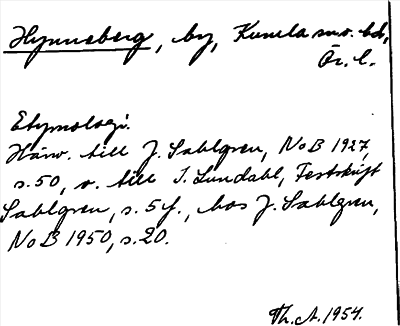 Hynneberg, by, Kumla sn o. hd,
Ör. l.
Etymologi.
Hänv. till J. Sahlgren, NoB 1927,
s. 50, o. till I. Lundahl, Festskrift
Sahlgren, s. 5 f., hos J. Sahlgren,
NoB 1950, s. 20.
Th. A. 1954.